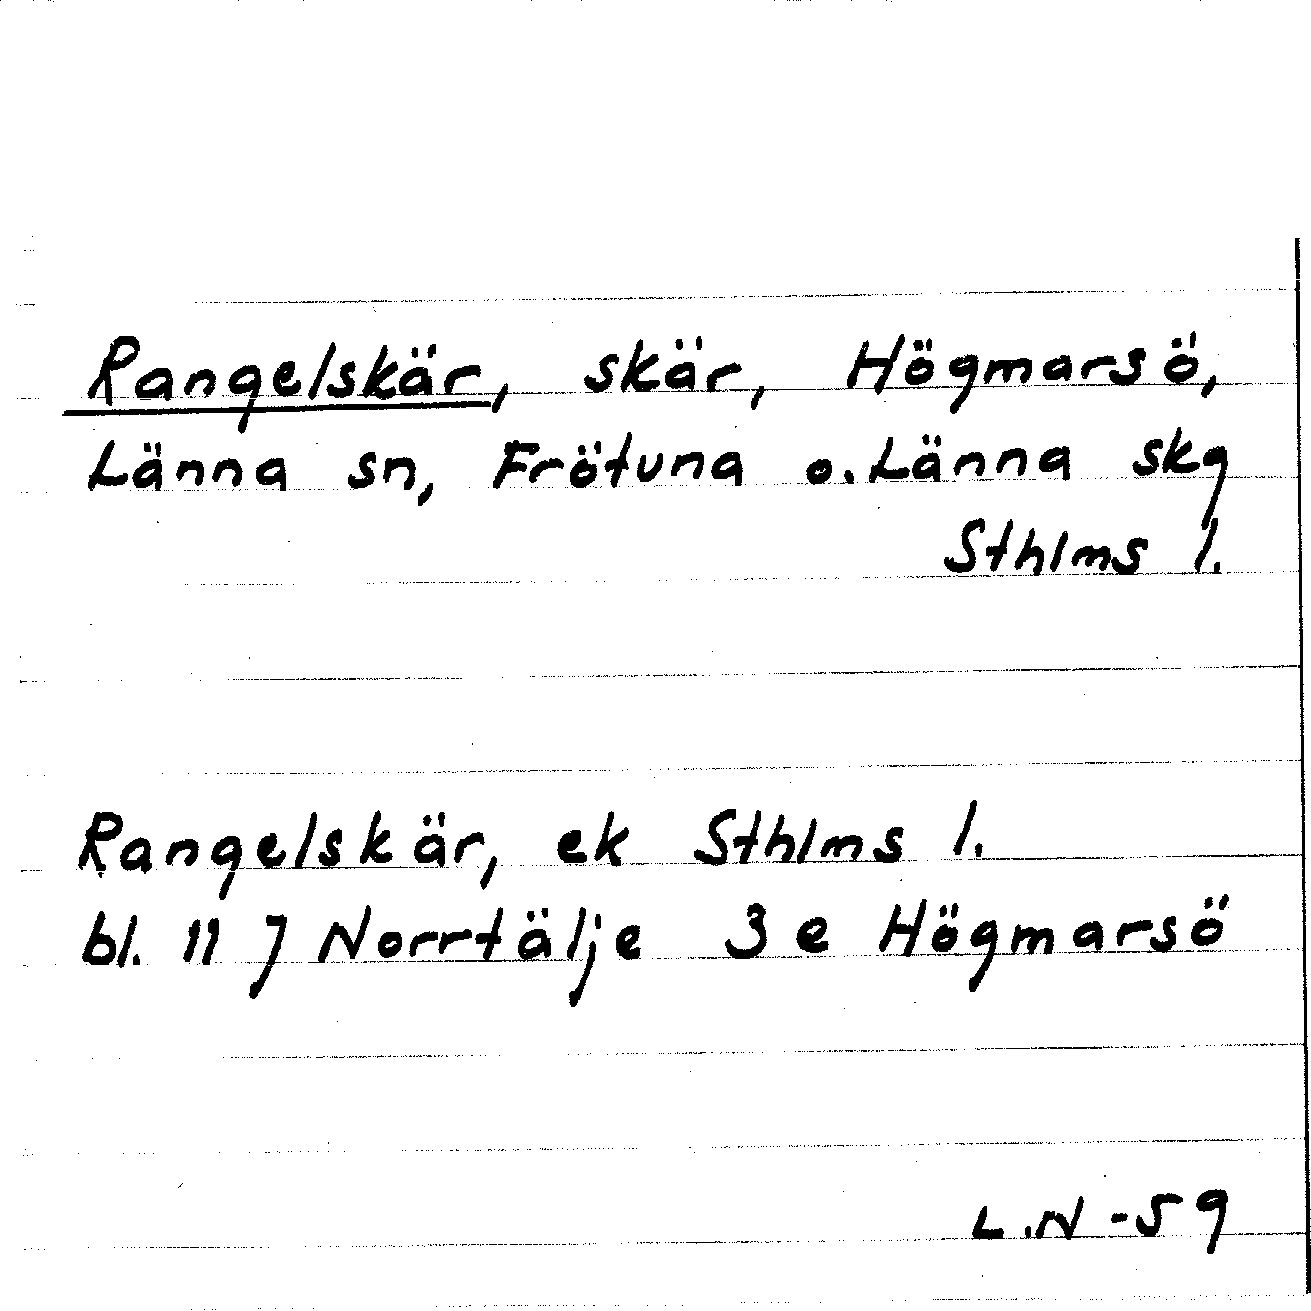 Rangelskär, skär, Högmarsö,
Länna sn, Frötuna o. Länna skg
Sthlms l.
Rangelskär, ek Sthlms l.
bl. 11 J Norrtälje 3 e Högmarsö
L.N -59